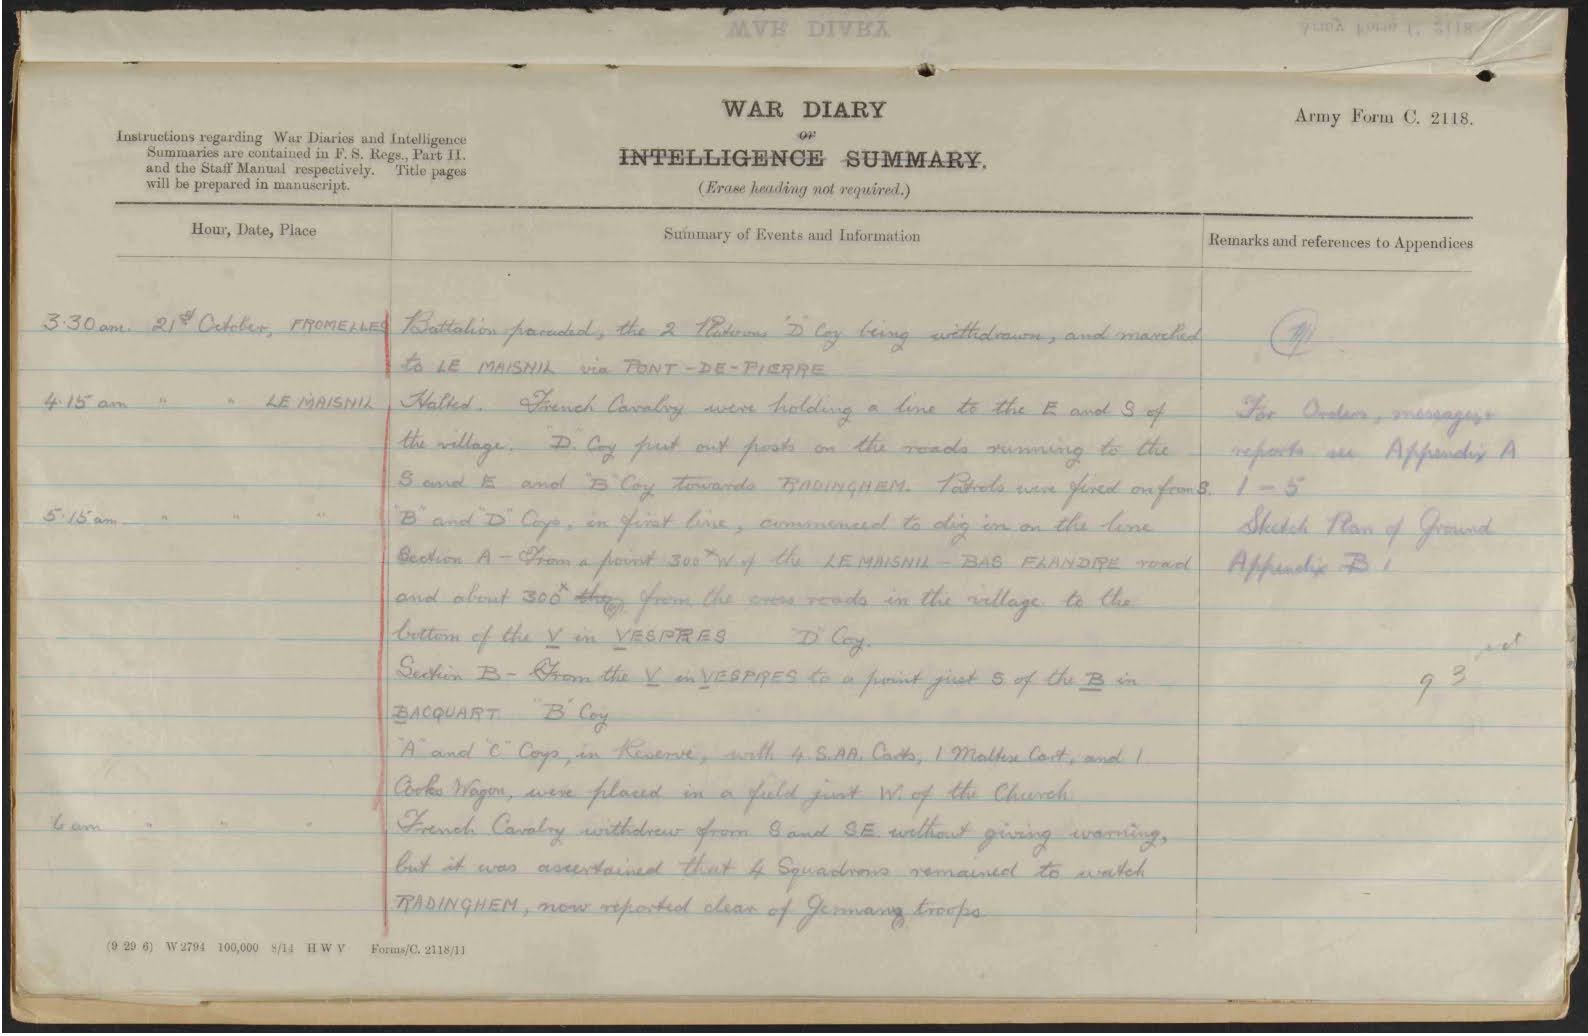 WAR DIARY
Army Form C. 2118
WAR DIARY
or
INTELLIGENCE SUMMARY.
(Erase heading not required.)
Army Form C. 2118.
Instructions regarding War Diaries and Intelligence
Summaries are contained in F. S. Regs., Part II.
and the Staff Manual respectively. Title pages
will be prepared in manuscript.
Hour, Date, Place
Summary of Events and Information
Remarks and references to Appendices
3.30 am. 21st October, FROMELLES
Battalion paraded, the 2 Platoons "D" Coy being withdrawn, and marched
to LE MAISNIL via PONT-DE-PIERRE
4.15 am " " LE MAISNIL
Halted. French Cavalry were holding a line to the E and S of
the village. "D" Coy put out posts on the roads running to the
S and E and "B" Coy towards RADINGHEM. Patrols were fired on from S.
5.15 am. " " "
"B" and "D" Coys, in first line, commenced to dig in on the line
Section A - From a point 300x W of the LE MAISNIL - BAS FLANDRE road
and about 300x from the cross roads in the village to the
bottom of the V in VESPRES "D" Coy.
Section B - From the V in VESPRES to a point just S of the B in
BACQUART "B" Coy
"A" and "C" Coys, in Reserve, with 4 S.AA. Carts, 1 Maltese Cart, and 1
Cooks Wagon, were placed in a field just W. of the Church.
6 am " " "
French Cavalry withdrew from S and SE without giving warning,
but it was ascertained that 4 Squadrons remained to watch
RADINGHEM, now reported clear of German troops
For Orders, messages &
reports see Appendix A
1 - 5
Sketch Plan of Ground
Appendix B 1
93
(9 29 6) W 2794 100,000 8/14 H W V Forms/C. 2118/11